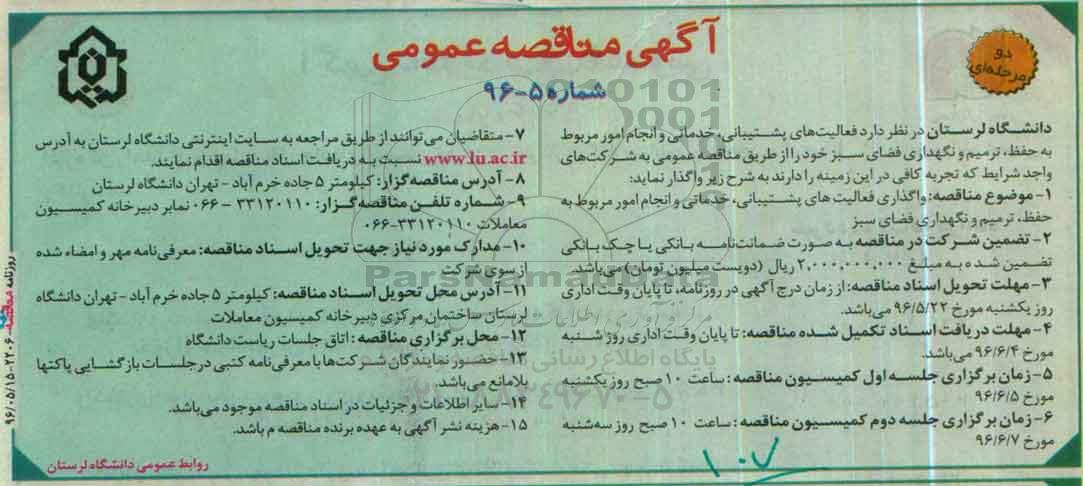 آگهی مناقصه عمومی
شماره ۵-۹۶
دو
مرحله‌ای
دانشگاه لرستان در نظر دارد فعالیت‌های پشتیبانی، خدماتی و انجام امور مربوط
به حفظ، ترمیم و نگهداری فضای سبز خود را از طریق مناقصه عمومی به شرکت‌های
واجد شرایط که تجربه کافی در این زمینه را دارند به شرح زیر واگذار نماید:
۱- موضوع مناقصه: واگذاری فعالیت های پشتیبانی، خدماتی و انجام امور مربوط به
حفظ، ترمیم و نگهداری فضای سبز
۲- تضمین شرکت در مناقصه به صورت ضمانت‌نامه بانکی یا چک بانکی
تضمین شده به مبلغ ۲,۰۰۰,۰۰۰,۰۰۰ ریال (دویست میلیون تومان) می‌باشد.
۳- مهلت تحویل اسناد مناقصه: از زمان درج آگهی در روزنامه، تا پایان وقت اداری
روز یکشنبه مورخ ۹۶/۵/۲۲ می‌باشد.
۴- مهلت دریافت اسناد تکمیل شده مناقصه: تا پایان وقت اداری روز شنبه
مورخ ۹۶/۶/۴ می‌باشد.
۵- زمان برگزاری جلسه اول کمیسیون مناقصه: ساعت ۱۰ صبح روز یکشنبه
مورخ ۹۶/۶/۵
۶- زمان برگزاری جلسه دوم کمیسیون مناقصه: ساعت ۱۰ صبح روز سه‌شنبه
مورخ ۹۶/۶/۷
۷- متقاضیان می‌توانند از طریق مراجعه به سایت اینترنتی دانشگاه لرستان به آدرس
www.lu.ac.ir نسبت به دریافت اسناد مناقصه اقدام نمایند.
۸- آدرس مناقصه‌گزار: کیلومتر ۵ جاده خرم آباد - تهران دانشگاه لرستان
۹- شماره تلفن مناقصه‌گزار: ۳۳۱۲۰۱۱۰ - ۰۶۶ نمابر دبیرخانه کمیسیون
معاملات ۳۳۱۲۰۱۱۰-۰۶۶
۱۰- مدارک مورد نیاز جهت تحویل اسناد مناقصه: معرفی‌نامه مهر و امضاء شده
از سوی شرکت
۱۱- آدرس محل تحویل اسناد مناقصه: کیلومتر ۵ جاده خرم آباد - تهران دانشگاه
لرستان ساختمان مرکزی دبیرخانه کمیسیون معاملات
۱۲- محل برگزاری مناقصه: اتاق جلسات ریاست دانشگاه
۱۳- حضور نمایندگان شرکت‌ها با معرفی‌نامه کتبی در جلسات بازگشایی پاکتها
بلامانع می‌باشد.
۱۴- سایر اطلاعات و جزئیات در اسناد مناقصه موجود می‌باشد.
۱۵- هزینه نشر آگهی به عهده برنده مناقصه م باشد.
روابط عمومی دانشگاه لرستان
روزنامه مناقصه-۲۲۰۶-۹۶/۰۵/۱۵
۱۰۷
ParsNamadData
پایگاه اطلاع رسانی